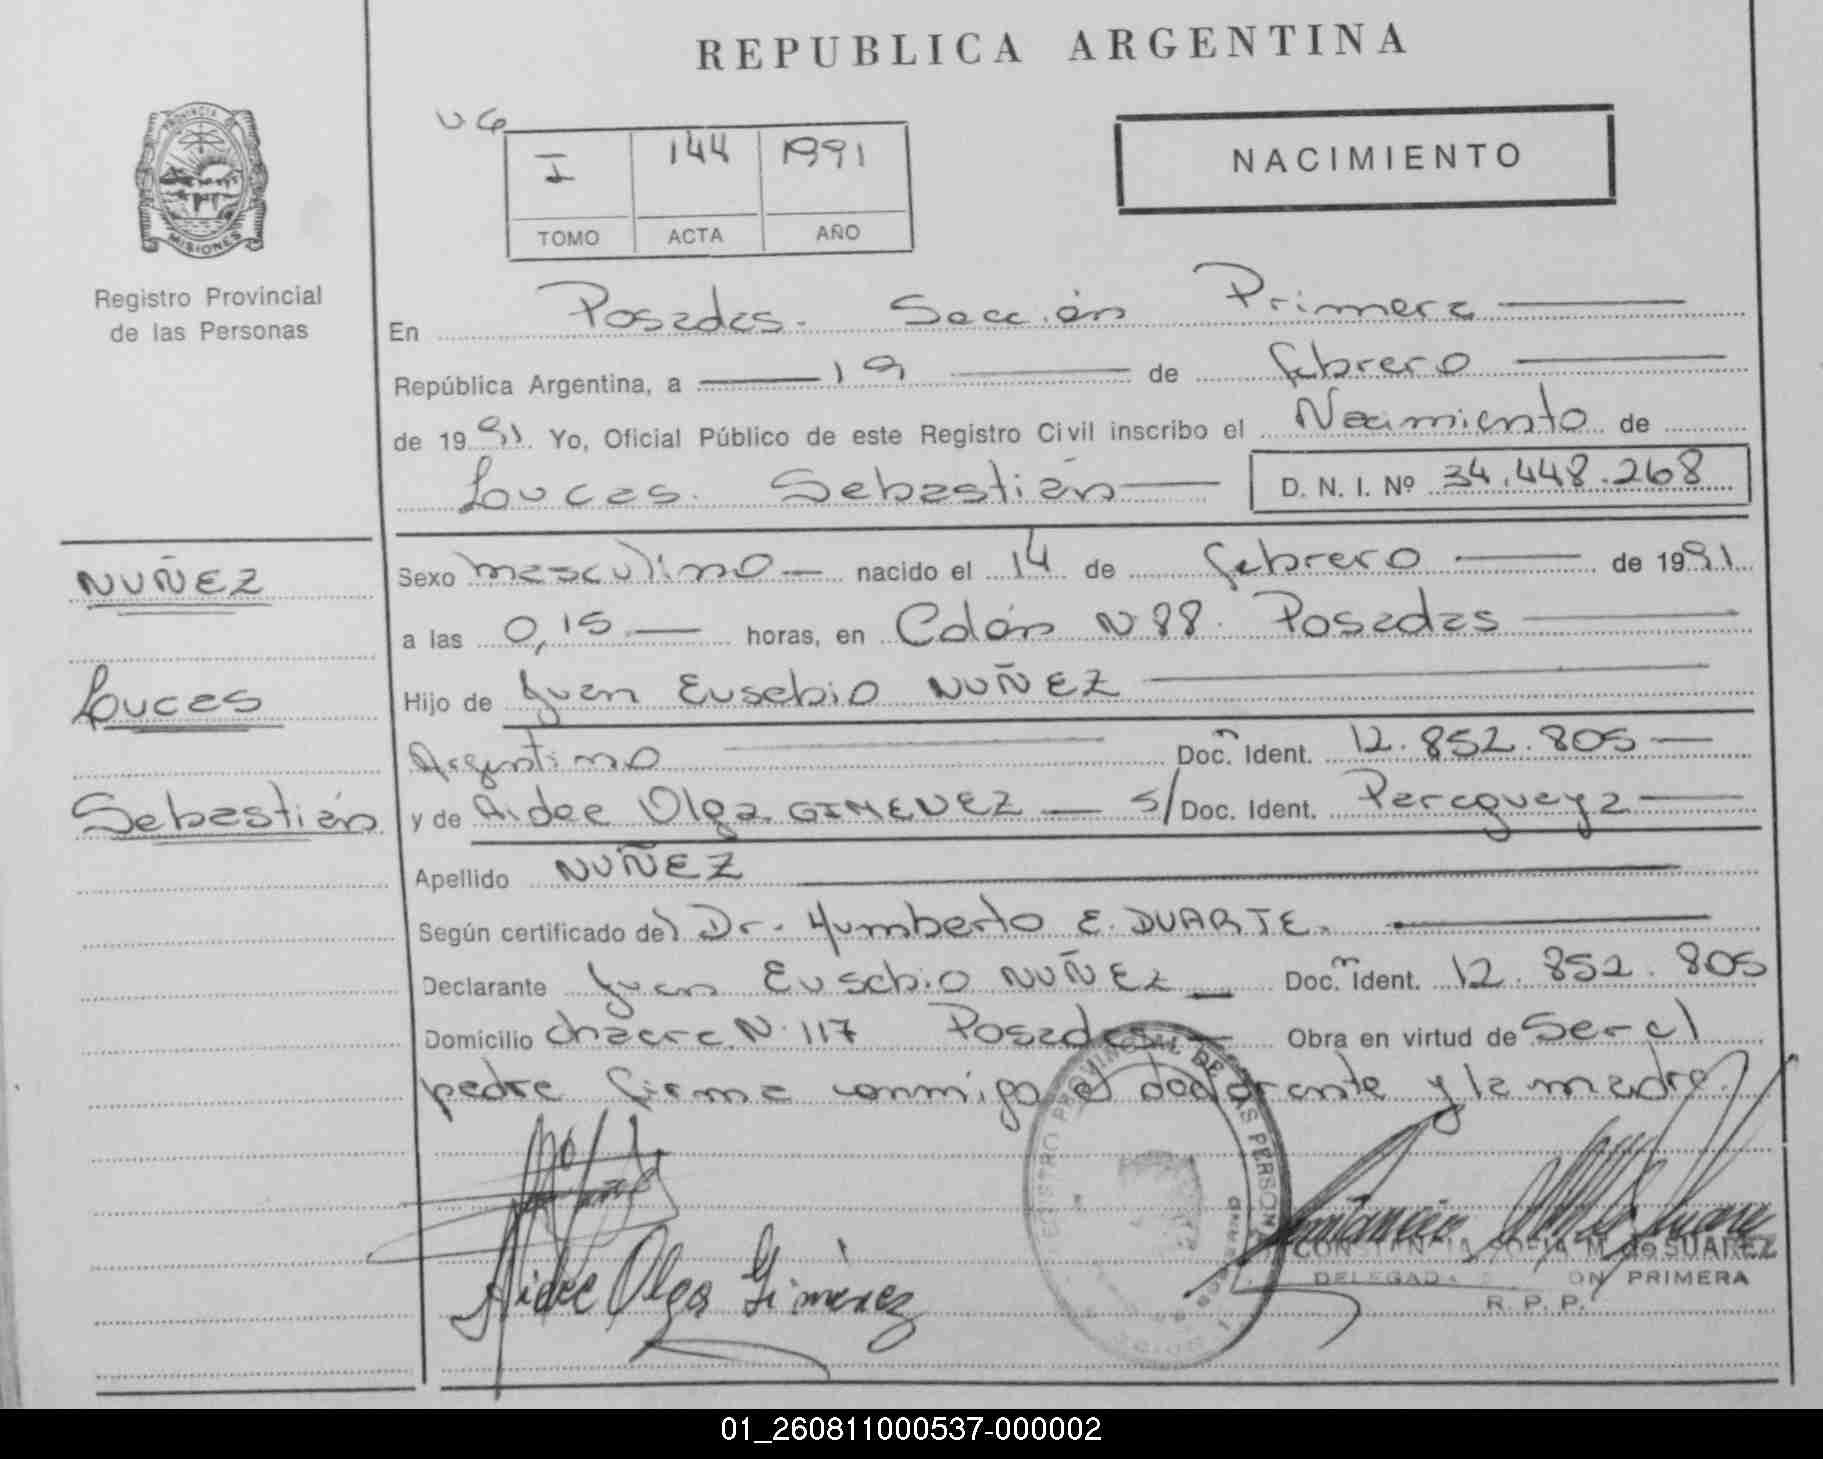 REPUBLICA ARGENTINA
PROVINCIA DE
MISIONES
Registro Provincial
de las Personas
NACIMIENTO
I 144 1991
TOMO ACTA AÑO
En Posadas. Sección Primera
República Argentina, a 19 de febrero
de 1991 Yo, Oficial Público de este Registro Civil inscribo el Nacimiento de
Loucas Sebastián D. N. I. Nº 34.448.268
NUÑEZ
Loucas
Sebastián
Sexo masculino nacido el 14 de febrero de 1991
a las 0,15 horas, en Colón N 88. Posadas
Hijo de Juan Eusebio NUÑEZ
Argentino Doc. Ident. 12.852.805
y de Aidee Olga GIMENEZ S/Doc. Ident. Paraguaya
Apellido NUÑEZ
Según certificado del Dr. Humberto E. DUARTE.
Declarante Juan Eusebio NUÑEZ Doc. Ident. 12.852.805
Domicilio chacra N. 117 Posadas Obra en virtud de Ser el
padre firma conmigo el declarante y la madre.
REGISTRO PROVINCIAL DE LAS PERSONAS
Aidee Olga Gimenez
CONSTANCIA SOFIA M. de SUAREZ
DELEGADA PRIMERA
R. P. P.
01_260811000537-000002